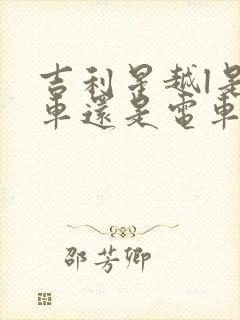 吉利星越l是
車還是電車
邵芳卿